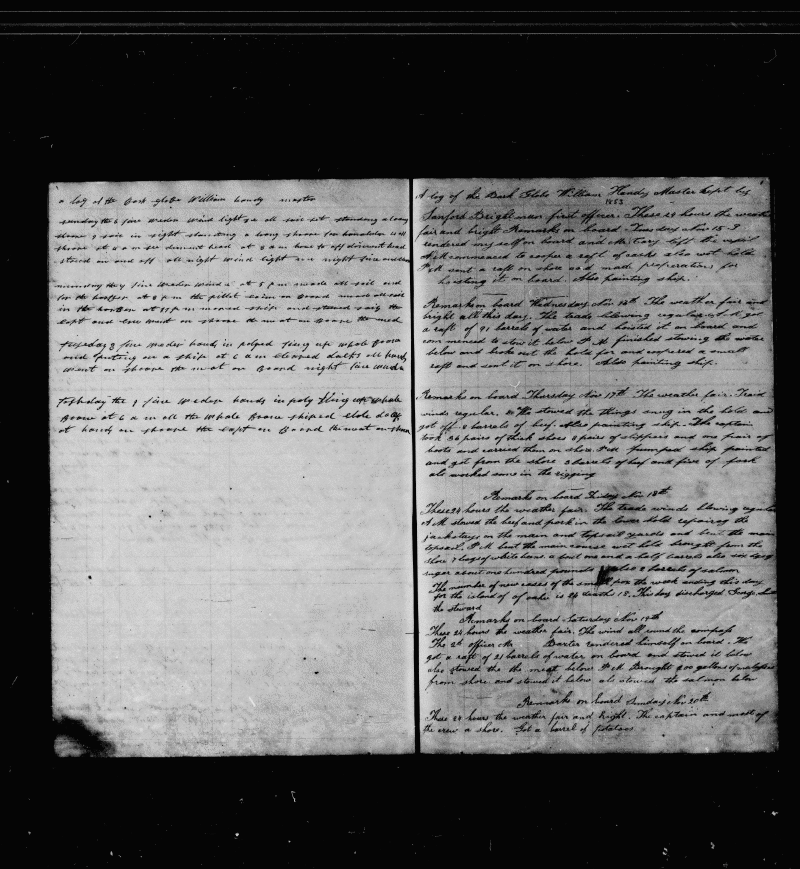 a log of the Bark globe William handy master
sunday the 6 fine Weder Wind light all sail set standing along
shoore sail in sight standing a long shoore for honolulu
at 8 a m hove to off dimont head
stood on and off all night Wind light night fine
monday the 7 fine Weder Wind at 5 p m made all sail and
for the at 8 p m the pillet caim on Board all sail
in the at p m moved ship and the
capt and on shoore the mat on Board
Tuseday 8 fine Weder hands in poleped fixing up Whale Boons
and putting on a ship at 6 a m cleaned daks all hands
Went on shoore the mat on Board night fine Weder
the 9 fine Weder hands in fixing up Whale
Boons at 6 a m all the Whale Boons shiped
at hands on shoore the capt on Board the mat on shoore
A log of the Bark Globe William Handy Master kept by
1853
Sanford Brightman first officer. These 24 hours the weather
fair and bright Remarks on board. Tuesday Nov 15. I
rendered myself on board and Mr. left the vessel
A.M commenced to cooper a raft of casks also wet hold
P.M sent a raft on shore and made preperations for
hoisting it on board. Also painting ship.
Remarks on board Wednesday Nov 16th The weather fair and
bright all this day. The trade blowing regular. A.M got
a raft of 91 barrels of water and hoisted it on board and
commenced to stow it below P.M finished stowing the water
below and broke out the hold for and coopered a small
raft and sent it on shore. Also painting ship.
Remarks on board Thursday Nov 17th The weather fair. Traid
winds regular. A.M stowed the things snug in the hold and
got off 8 barrels of beef. Also painting ship. The captain
took 36 pairs of thick shoes 8 pairs of slippers and one pair of
boots and carried them on shore P.M pumped ship painted
and got from the shore 3 barrels of beef and five of pork
als worked some in the rigging
Remarks on board Friday Nov 18th
These 24 hours the weather fair. The trade winds blowing regular
A.M stowed the beef and pork in the lower hold repairing the
jackstays on the main and topsail yards and bent the main
topsail. P.M bent the main course wet hold brought from the
shore 7 bags of white beans a boat one and a half barrels also six bags
sugar about one hundred pounds 2 barrels of salmon
The number of new cases of the small pox the week ending this day
for the island of of oahu is 24 deaths 18. This day discharged George
the steward
Remarks on board Saturday Nov 19th
These 24 hours the weather fair. The wind all round the compass
The 2d officer Mr Baxter rendered himself on board. We
got a raft of 21 barrels of water on board and stowed it below
also stowed the the meat below P.M Brought 200 gallons of molasses
from shore and stowed it below als stowed the salmon below
Remarks on board Sunday Nov 20th
These 24 hours the weather fair and bright. The captain and most of
the crew a shore. Got a barrel of potatoes